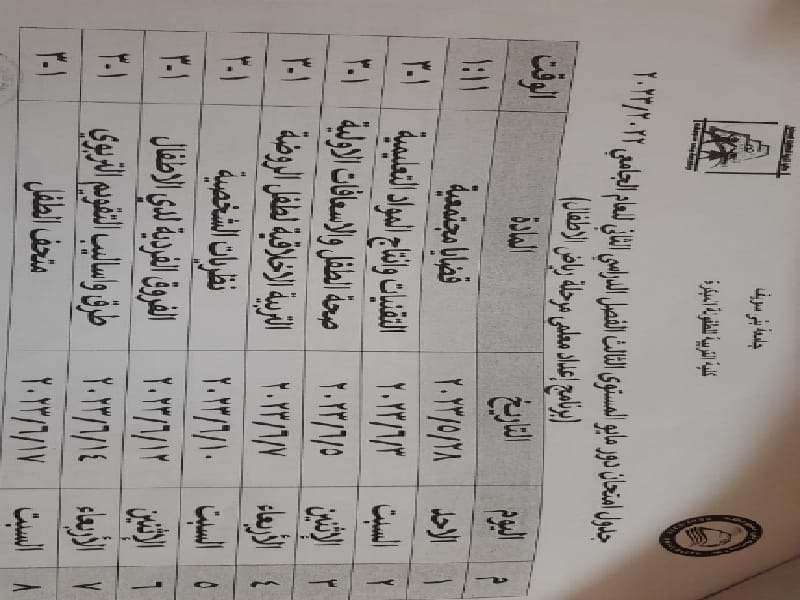 جامعة بنى سويف
كلية التربية للطفولة المبكرة
جدول امتحان دور مايو المستوى الثالث الفصل الدراسي الثاني للعام الجامعي ٢٠٢٣/٢٠٢٢
(برنامج إعداد معلمى مرحلة رياض الاطفال)
م اليوم التاريخ المادة الوقت
١ الاحد ٢٠٢٣/٥/٢٨ قضايا مجتمعية ١:١١
٢ السبت ٢٠٢٣/٦/٣ التقنيات وانتاج المواد التعليمية ٣-١
٣ الإثنين ٢٠٢٣/٦/٥ صحة الطفل والاسعافات الاولية ٣-١
٤ الأربعاء ٢٠٢٣/٦/٧ التربية الاخلاقية لطفل الروضة ٣-١
٥ السبت ٢٠٢٣/٦/١٠ نظريات الشخصية ٣-١
٦ الإثنين ٢٠٢٣/٦/١٢ الفروق الفردية لدي الاطفال ٣-١
٧ الأربعاء ٢٠٢٣/٦/١٤ طرق واساليب التقويم التربوي ٣-١
٨ السبت ٢٠٢٣/٦/١٧ متحف الطفل ٣-١